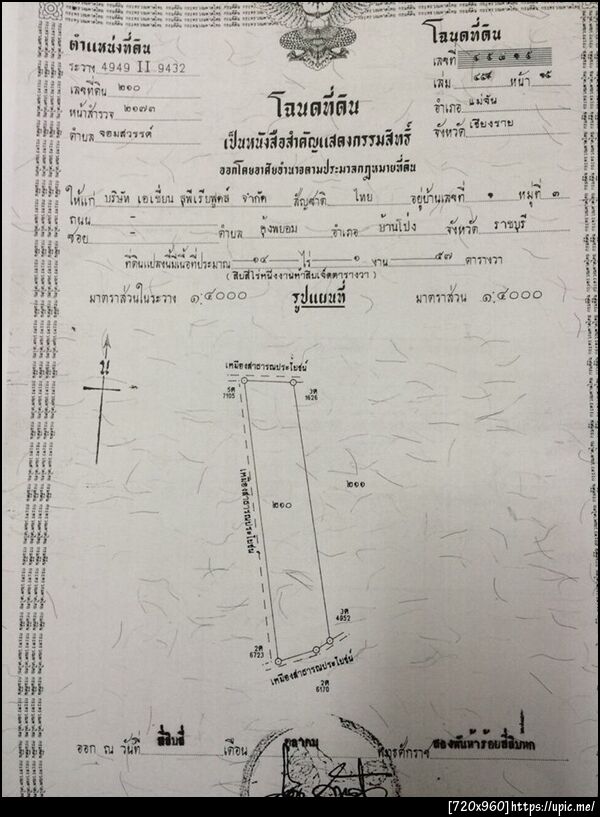 ตำแหน่งที่ดิน
ระวาง 4949 II 9432
เลขที่ดิน ๒๑๐
หน้าสำรวจ ๒๑๗๓
ตำบล จอมสวรรค์
โฉนดที่ดิน
เลขที่
เล่ม ๔๕๙ หน้า ๑๕
อำเภอ แม่จัน
จังหวัด เชียงราย
โฉนดที่ดิน
เป็นหนังสือสำคัญแสดงกรรมสิทธิ์
ออกโดยอาศัยอำนาจตามประมวลกฎหมายที่ดิน
ให้แก่ บริษัท เอเชี่ยน สุพีเรียฟูดส์ จำกัด สัญชาติ ไทย อยู่บ้านเลขที่ ๑ หมู่ที่ ๓
ถนน -
ซอย - ตำบล คุ้งพยอม อำเภอ บ้านโป่ง จังหวัด ราชบุรี
ที่ดินแปลงนี้มีเนื้อที่ประมาณ ๑๔ ไร่ ๑ งาน ๕๗ ตารางวา
(สิบสี่ไร่หนึ่งงานห้าสิบเจ็ดตารางวา)
มาตราส่วนในระวาง ๑:๔๐๐๐ รูปแผนที่ มาตราส่วน ๑:๔๐๐๐
น
เหมืองสาธารณประโยชน์
5ต
7105
3ต
1626
เหมืองสาธารณประโยชน์
๒๑๐
๒๑๑
3ต
4952
2ต
6723
เหมืองสาธารณประโยชน์
2ต
6170
ออก ณ วันที่ สี่สิบสี่ เดือน ตุลาคม พุทธศักราช สองพันห้าร้อยสี่สิบหก
[720x960]https://upic.me/